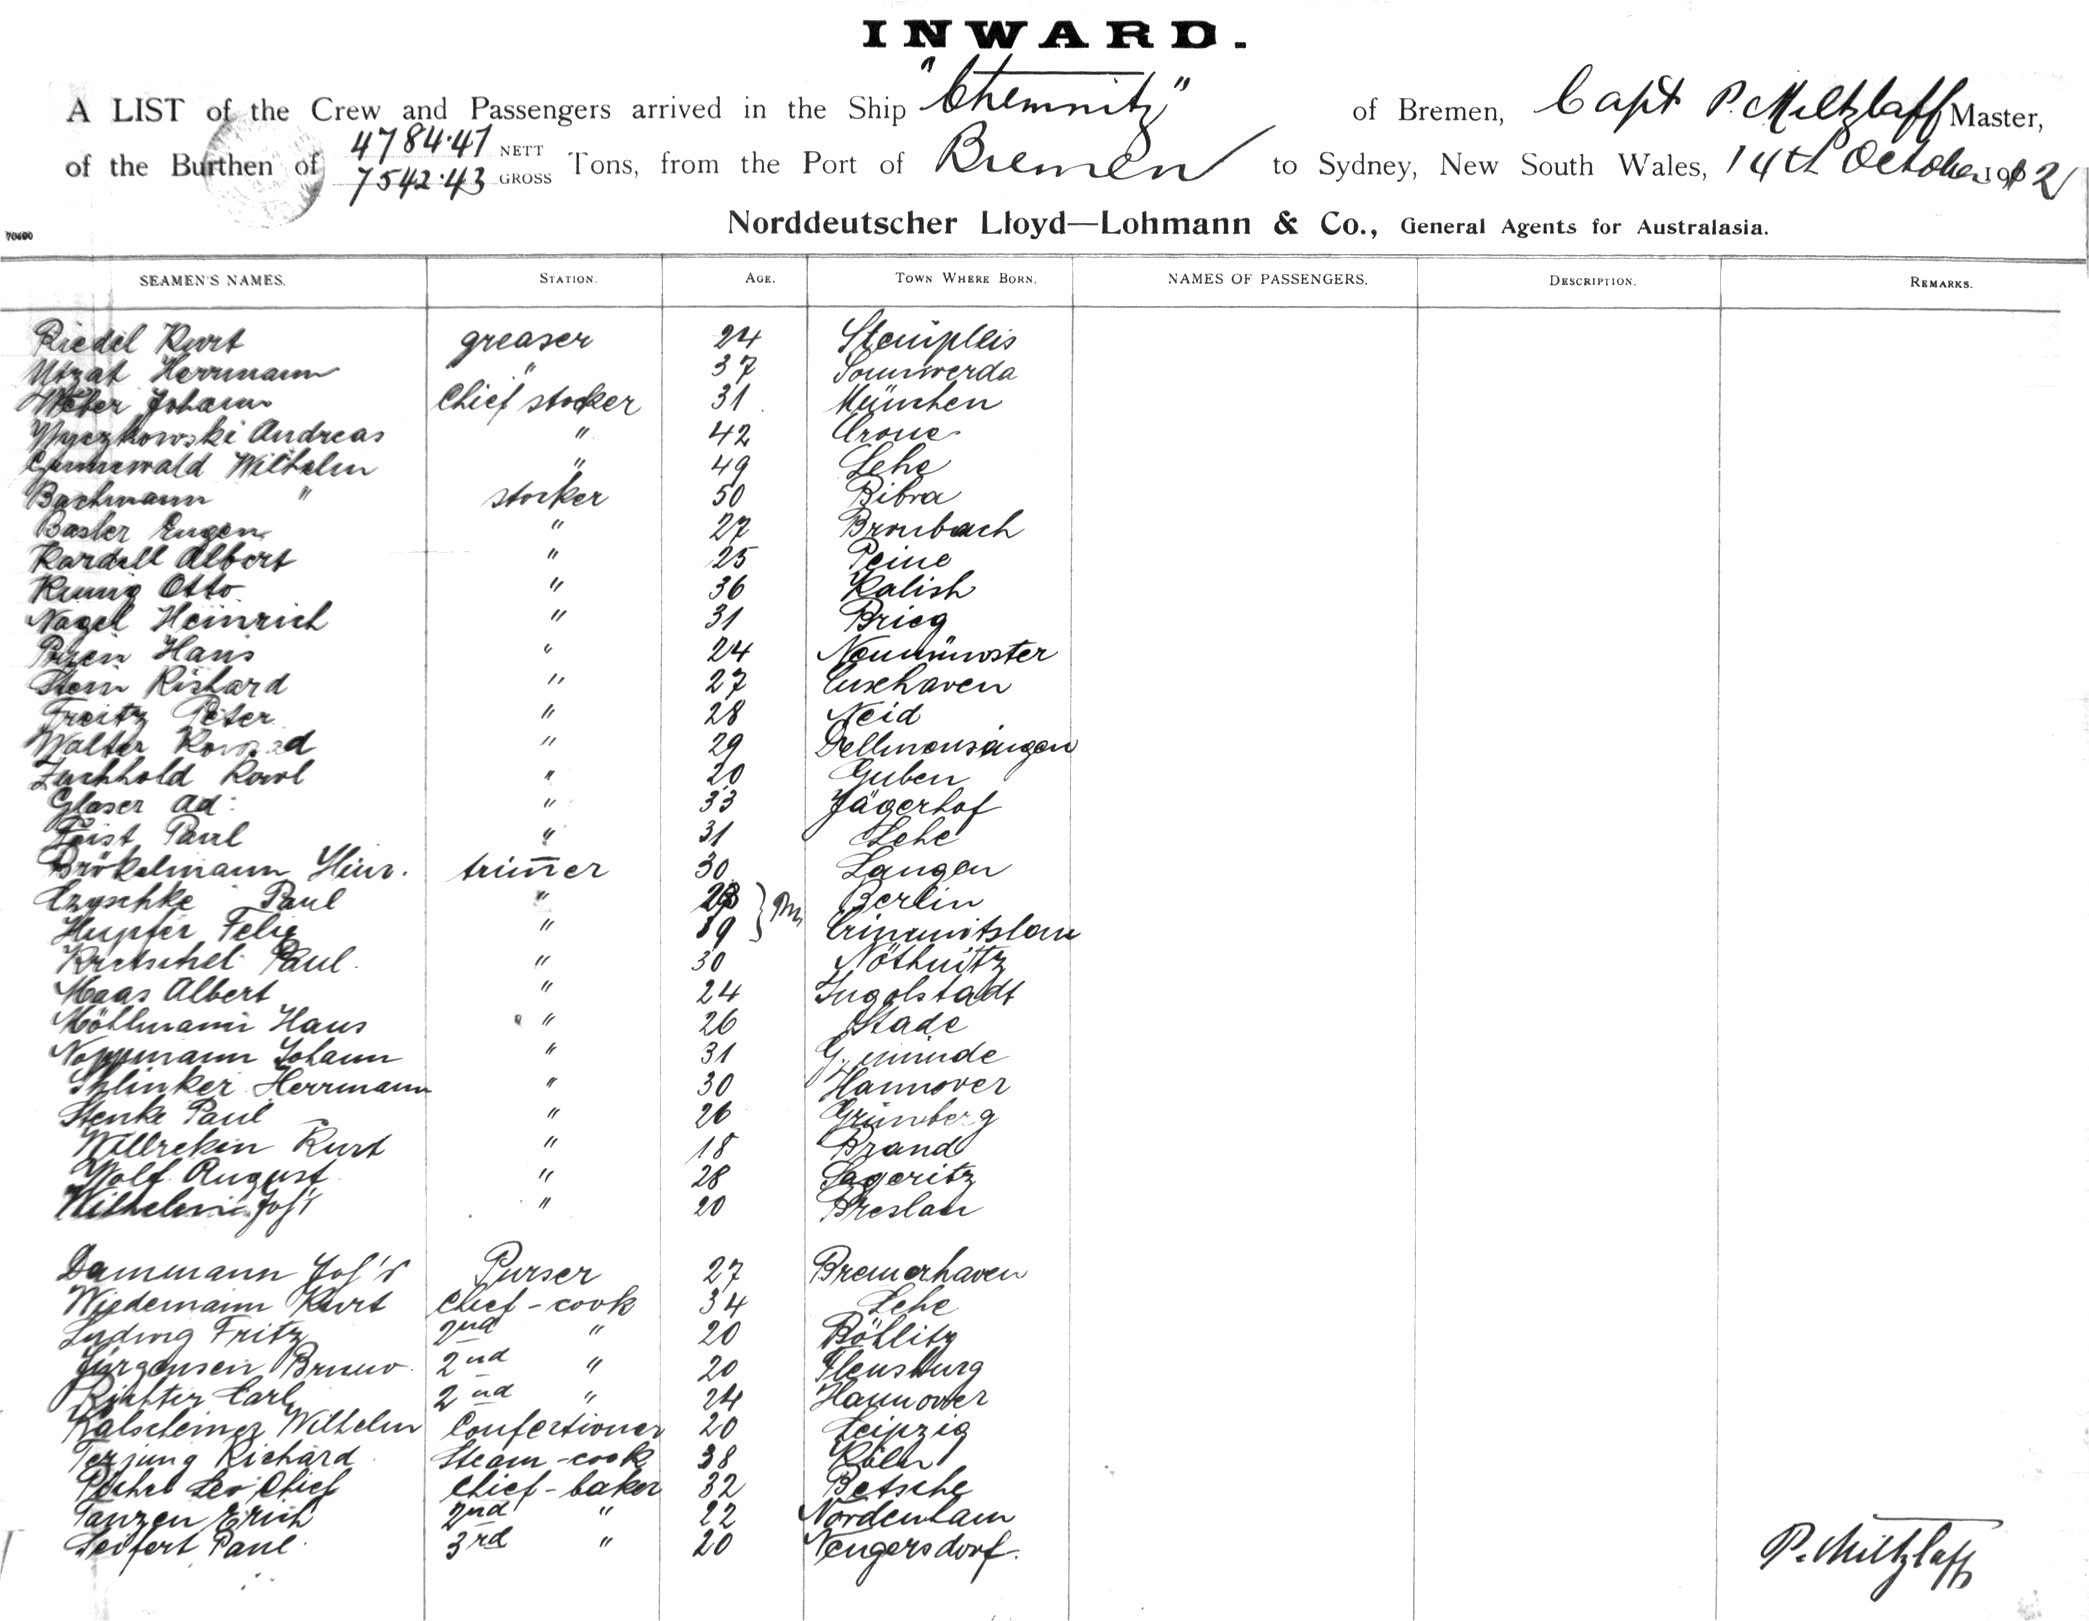 INWARD.
A LIST of the Crew and Passengers arrived in the Ship "Chemnitz" of Bremen, Capt P. Miltzlaff Master,
of the Burthen of 4784.47 NETT 7542.43 GROSS Tons, from the Port of Bremen to Sydney, New South Wales, 14th October 1912
Norddeutscher Lloyd—Lohmann & Co., General Agents for Australasia.
70690
SEAMEN'S NAMES. STATION. AGE. TOWN WHERE BORN. NAMES OF PASSENGERS. DESCRIPTION. REMARKS.
Riedel Kurt greaser 24
Utzat Herrmann " 37 Sömmerda
Weber Johann Chief stocker 31 München
Wyczkowski Andreas " 42 Crone
Grunewald Wilhelm " 49 Lehe
Bachmann " stocker 50 Bibra
Basler Eugen " 27 Brombach
Kardell Albert " 25 Peine
Otto " 36 Kalish
Nagel Heinrich " 31 Brieg
Hans " 24 Neumünster
Stern Richard " 27 Cuxhaven
Freitz Peter " 28 Neid
Walter Konrad " 29 Dellmensingen
Zuchhold Karl " 20 Guben
Glaser Ad: " 33 Jägerhof
Feist Paul " 31 Lehe
Brökelmann Hinr. trim̅er 30 Langen
Czyschke Paul " Berlin
Hupfer Felix " 19 Crimmitschau
Kretschel Paul " 30 Nöthnitz
Maas Albert " 24 Ingolstadt
Möhlmann Hans " 26 Stade
Noppmann Johann " 31
Schlinker Herrmann " 30 Hannover
Stenke Paul " 26 Grünberg
Kurt " 18 Brand
Wolf August " 28 Sageritz
Wilhelmi Joh's " 20 Breslau
Dammann Joh's Purser 27 Bremerhaven
Wiedemann Kurt Chief-cook 34 Lehe
Ludwig Fritz 2nd " 20 Böhlitz
Jürgensen Bruno 2nd " 20 Flensburg
Richter Carl 2nd " 24 Hannover
Kalscheuer Wilhelm Confectioner 20 Leipzig
Terjung Richard Steam-cook 38 Köln
Leo Chief Chief-baker 32 Betsche
Tanzen Erich 2nd " 22 Nordenham
Seifert Paul 3rd " 20 Neugersdorf.
P. Miltzlaff